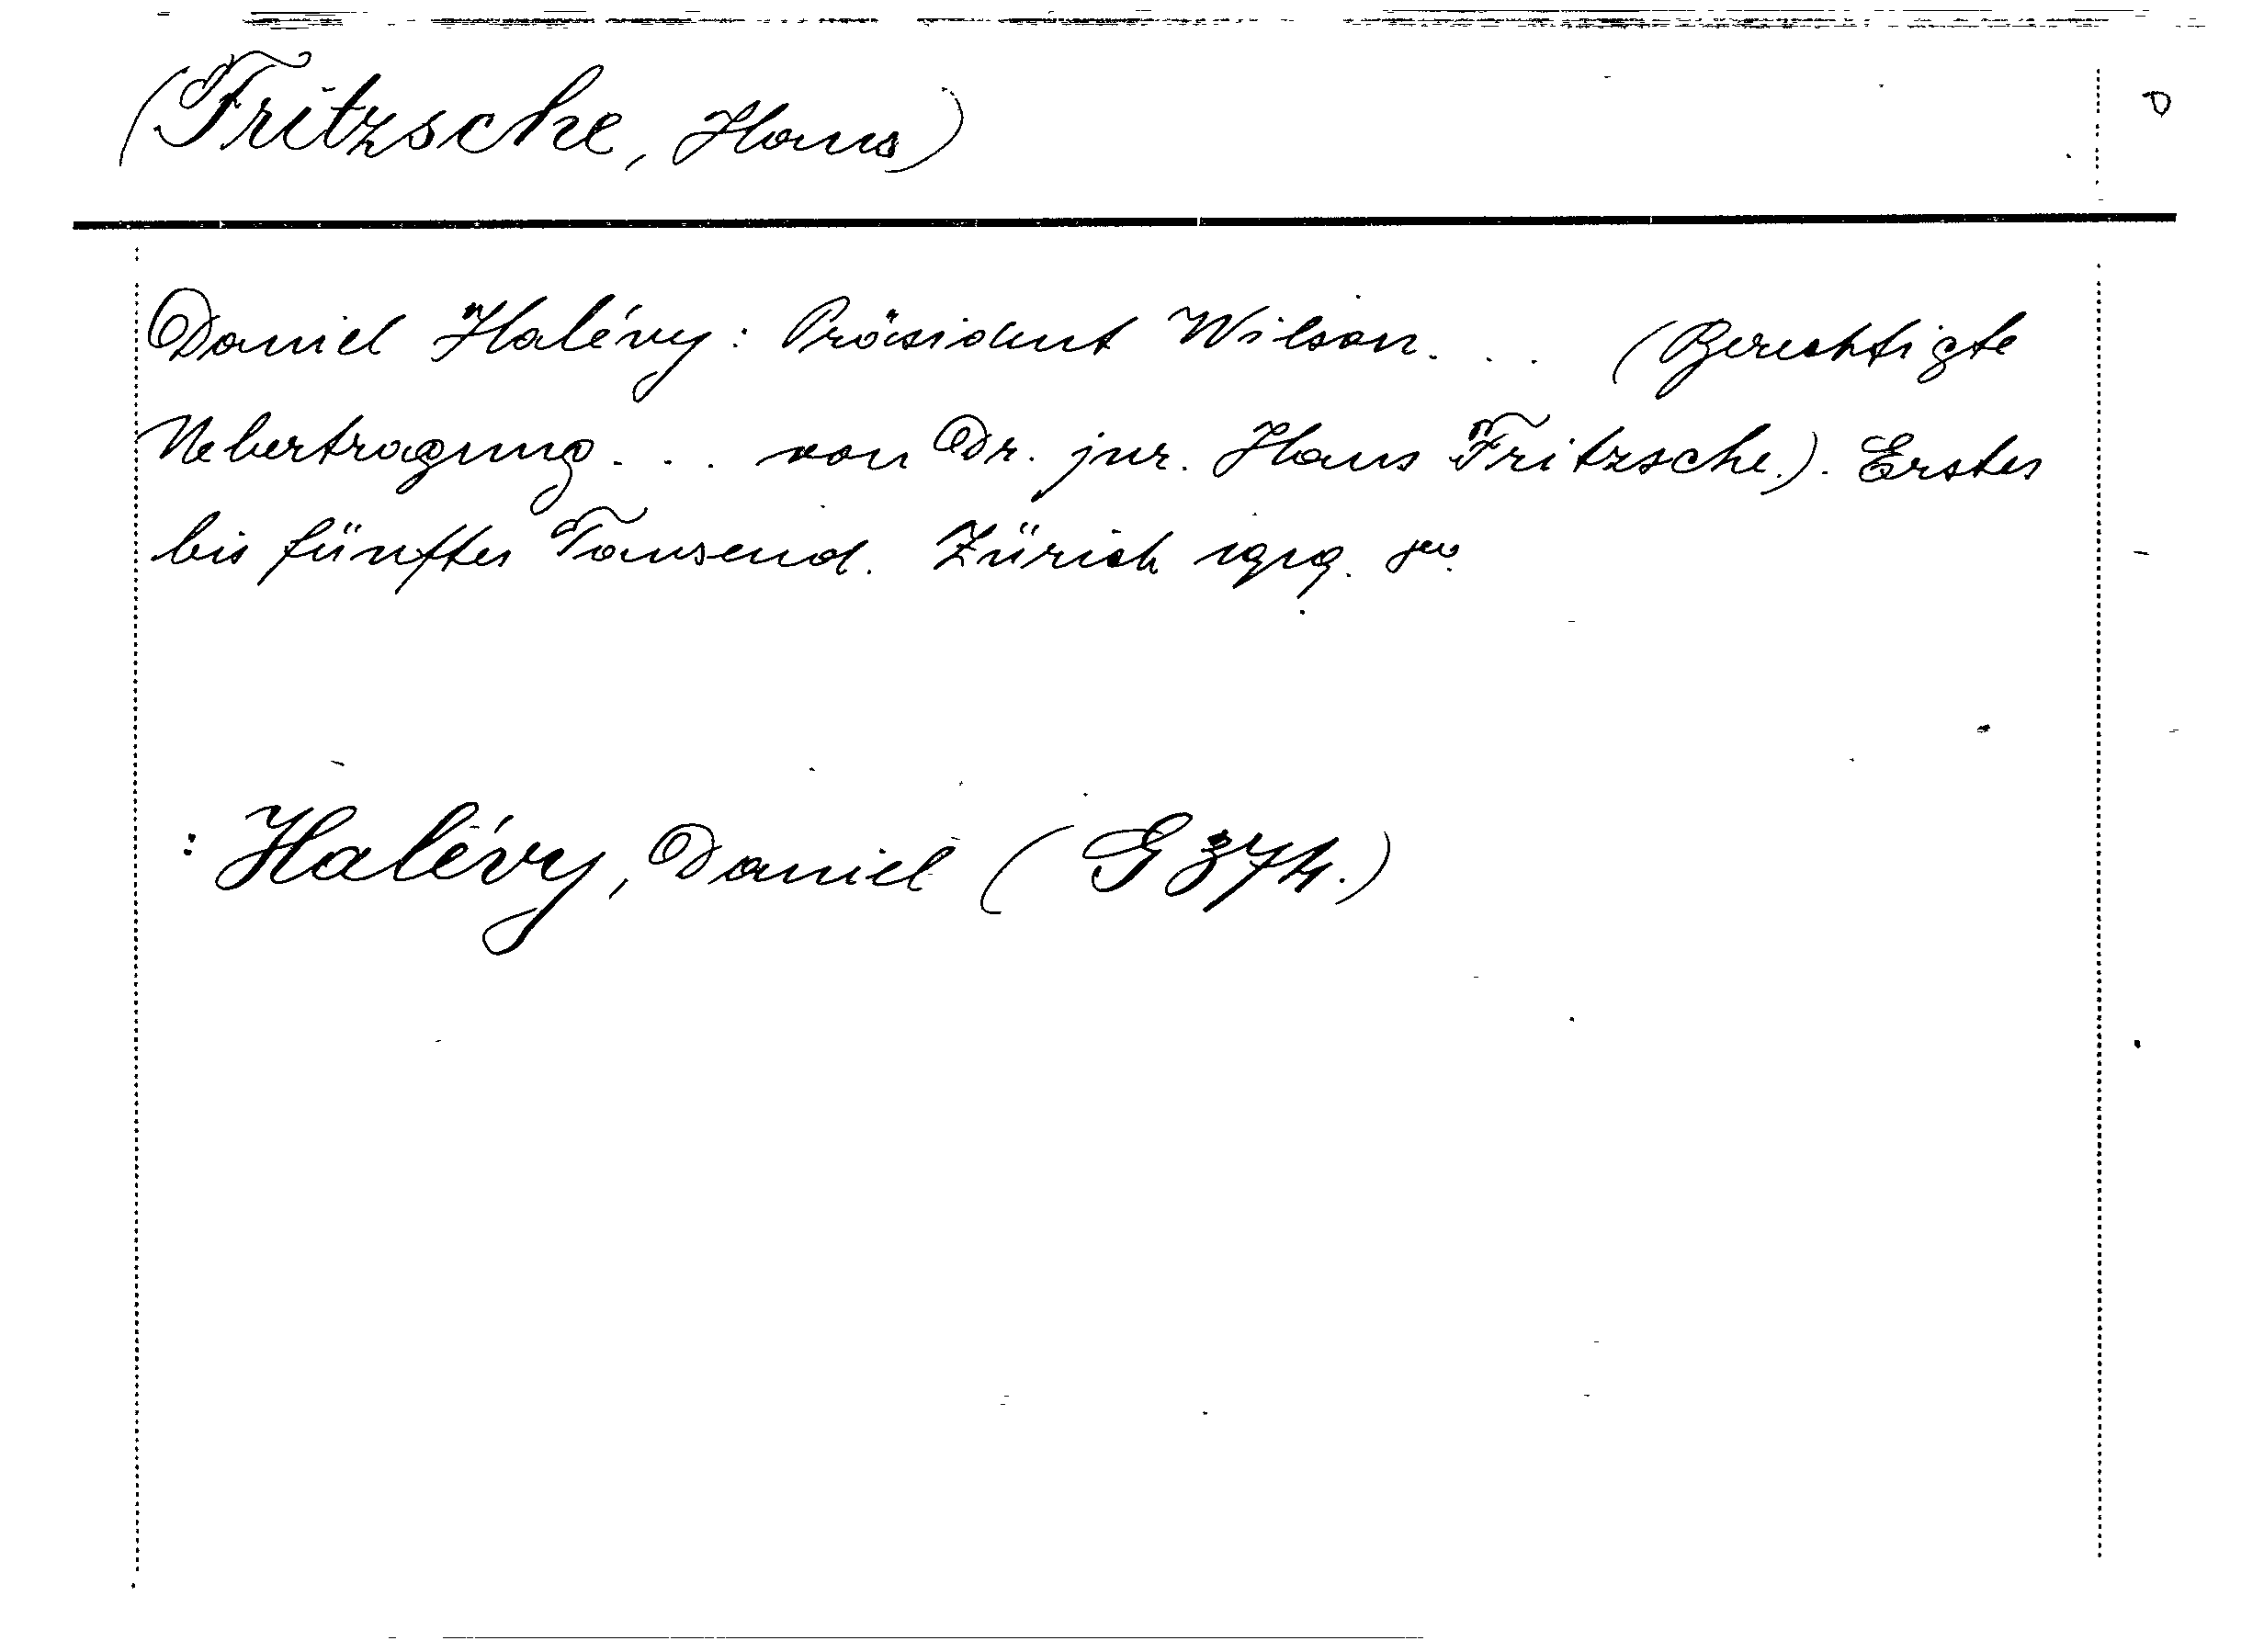 (Fritzsche, Hans)
Daniel Halévy: Präsident Wilson. . . (Berechtigte
Uebertragung. . . von Dr. jur. Hans Fritzsche.). Erstes
bis fünftes Tausend. Zürich 1919. 8°.
: Halévy, Daniel (G 374.)